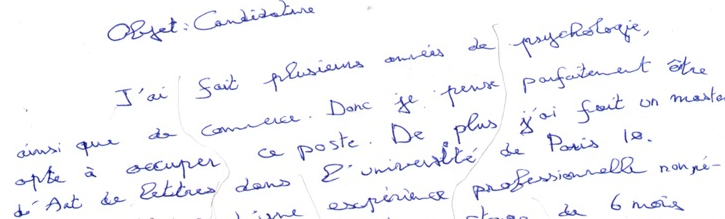 Objet : Candidature
J'ai fait plusieurs années de psychologie,
ainsi que de commerce. Donc je pense parfaitement être
apte à occuper ce poste. De plus j'ai fait un master
d'Art de lettres dans l'université de Paris 10.
expérience professionnelle non né-
stage de 6 mois